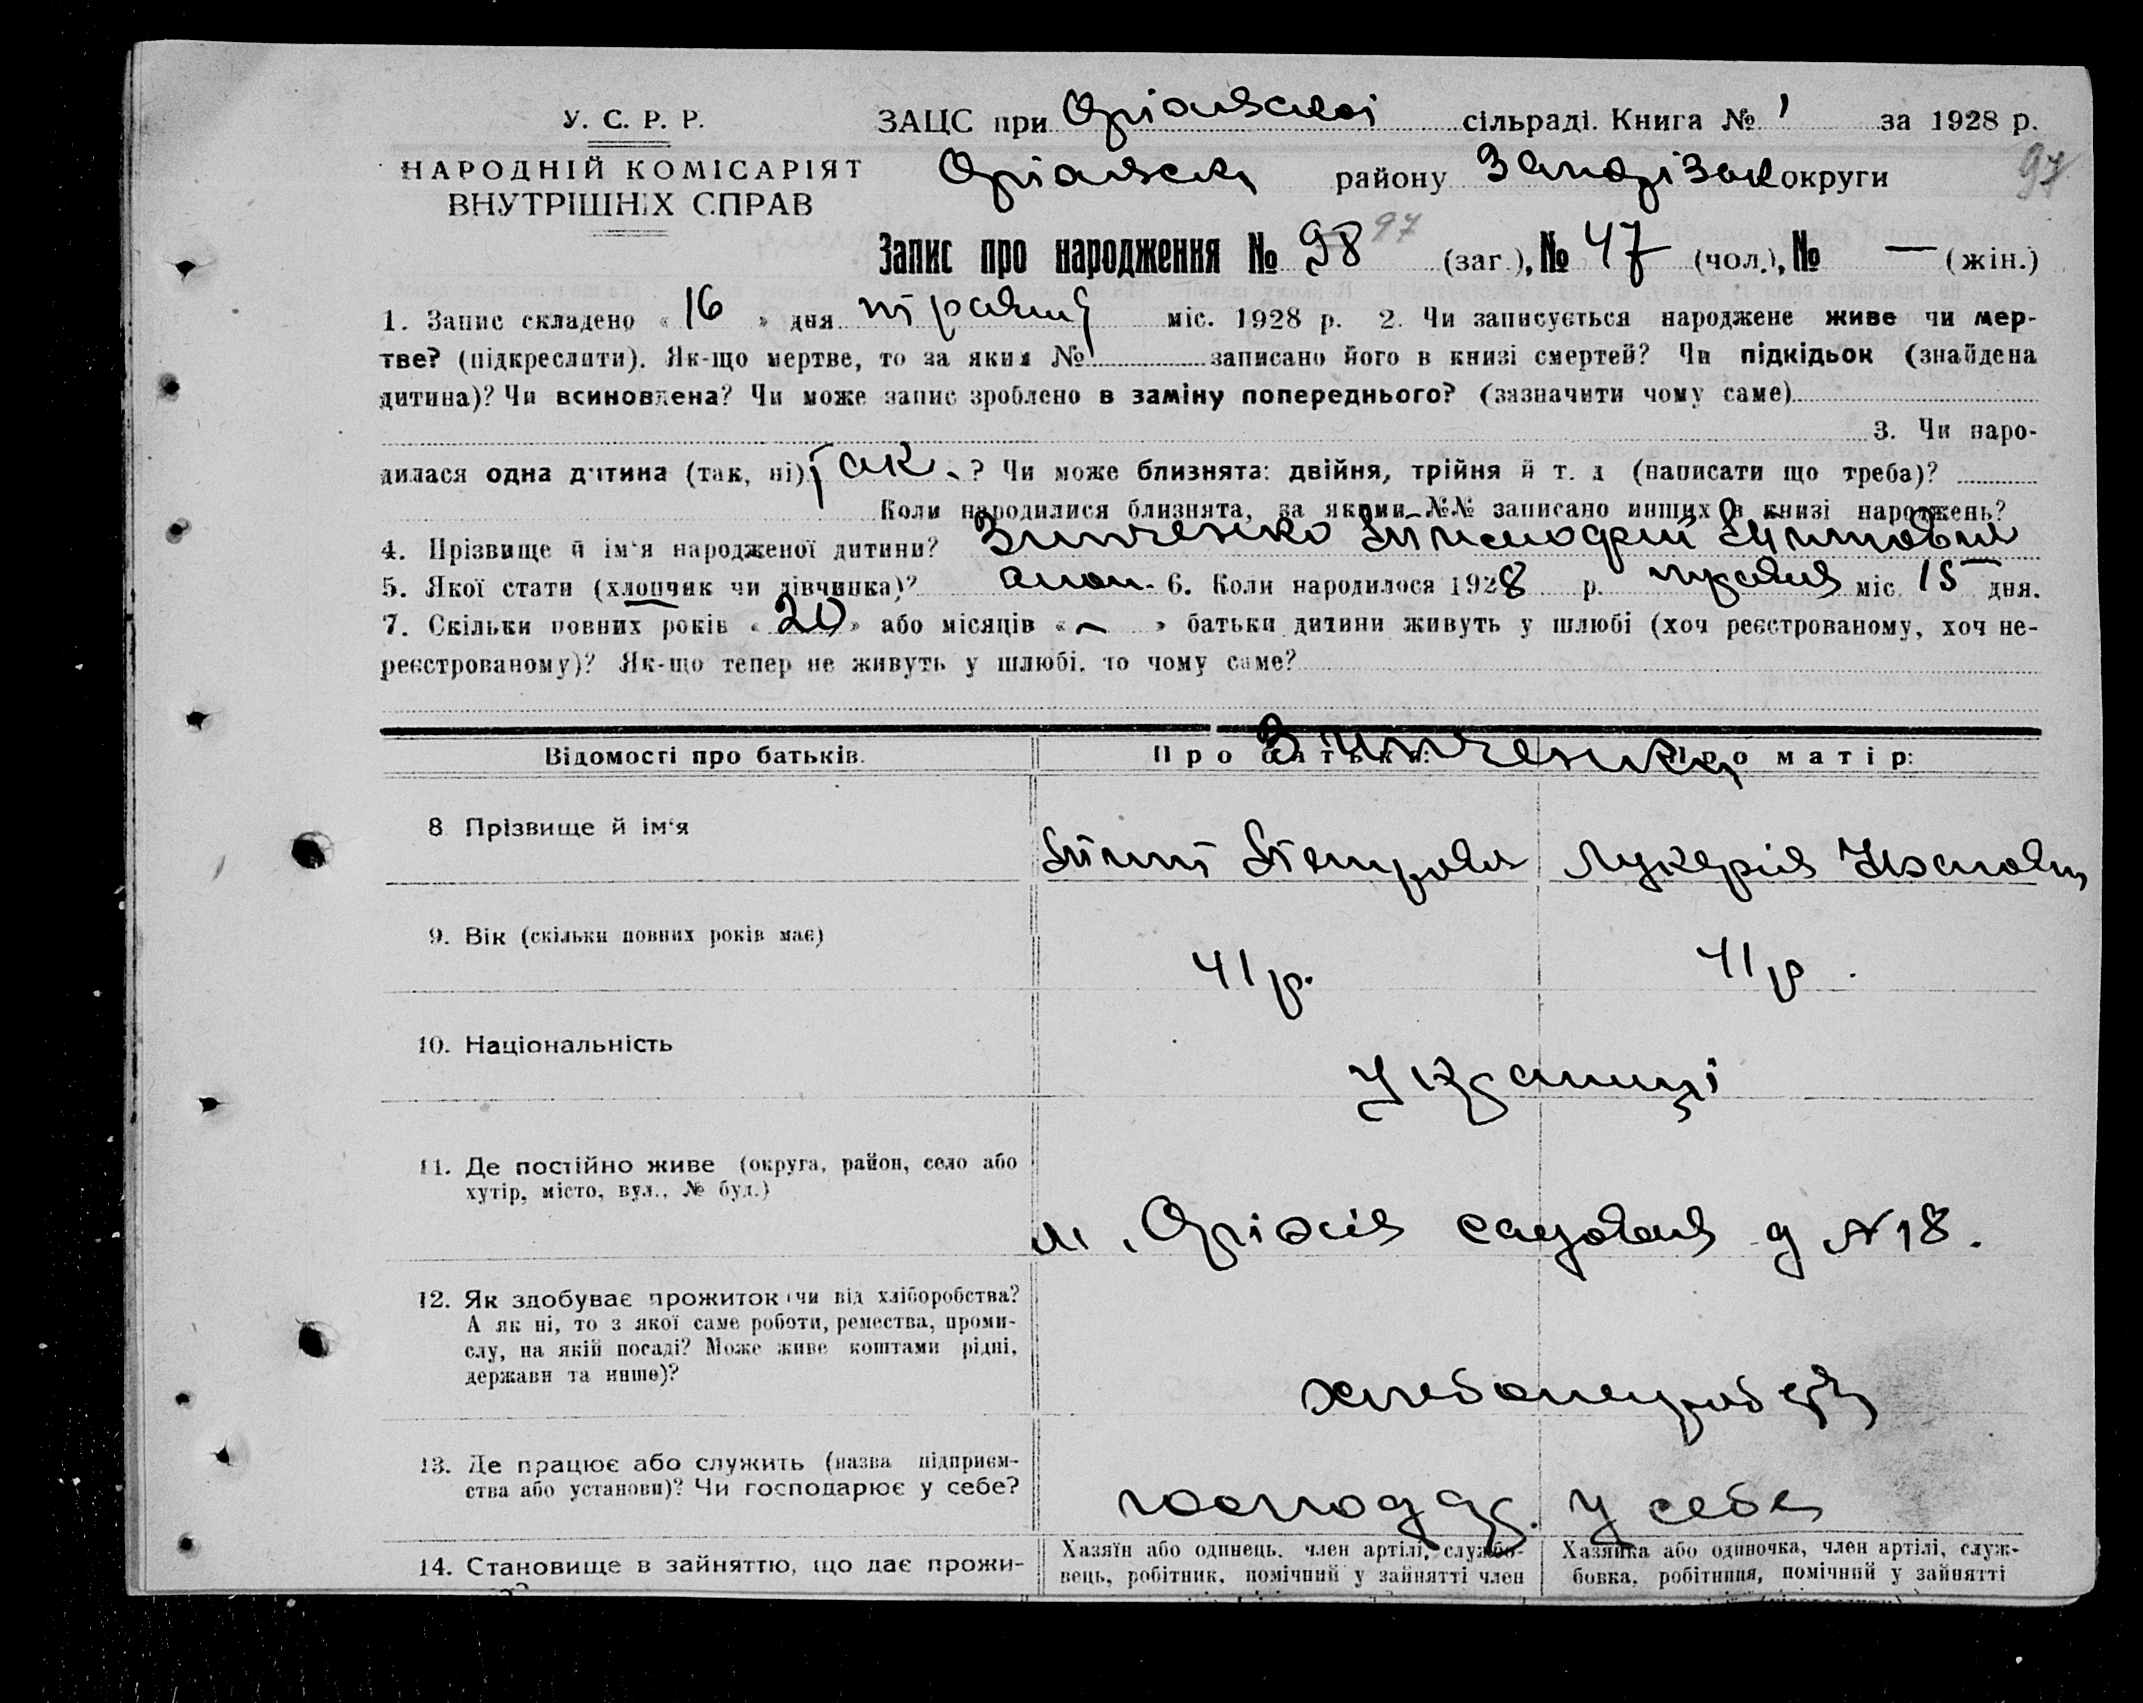 У. С. Р. Р.
НАРОДНІЙ КОМІСАРІЯТ
ВНУТРІШНІХ СПРАВ
ЗАЦС при Оріхівській сільраді. Книга № 1 за 1928 р.
Оріхівськ. району Запорізьк округи
97
Запис про народження № 98 97 (заг.), № 47 (чол.), № — (жін.)
1. Запис складено « 16 » дня травня міс. 1928 р. 2. Чи записується народжене живе чи мер-
тве? (підкреслити). Як-що мертве, то за яким № записано його в книзі смертей? Чи підкідьок (знайдена
дитина)? Чи всиновлена? Чи може запис зроблено в заміну попереднього? (зазначити чому саме)
3. Чи наро-
дилася одна дитина (так, ні) так. ? Чи може близнята: двійня, трійня й т. д (написати що треба)?
Коли народилися близнята, за якими №№ записано инших в книзі народжень?
4. Прізвище й ім‘я народженої дитини? Зинченко
5. Якої стати (хлопчик чи дівчинка)? 6. Коли народилося 1928 р. травня міс. 15 дня.
7. Скільки повних років « 20 » або місяців « — » батьки дитини живуть у шлюбі (хоч реєстрованому, хоч не-
реєстрованому)? Як-що тепер не живуть у шлюбі, то чому саме?
Відомості про батьків. Про батька: Про матір:
Зинченки
8 Прізвище й ім‘я Петров. Лукерія
9. Вік (скільки повних років має) 41 р. 41 р.
10. Національність Українці
11. Де постійно живе (округа, район, село або
хутір, місто, вул., № буд.)
м. Оріхів садовая д № 18.
12. Як здобуває прожиток чи від хліборобства?
А як ні, то з якої саме роботи, ремества, проми-
слу, на якій посаді? Може живе коштами рідні,
держави та инше)?
13. Де працює або служить (назва підприєм-
ства або установи)? Чи господарює у себе?
господар. у себе
14. Становище в зайняттю, що дає прожи-
Хазяїн або одинець, член артілі, службо-
вець, робітник, помічний у зайнятті член
Хазяйка або одиночка, член артілі, служ-
бовка, робітниця, помічний у зайнятті